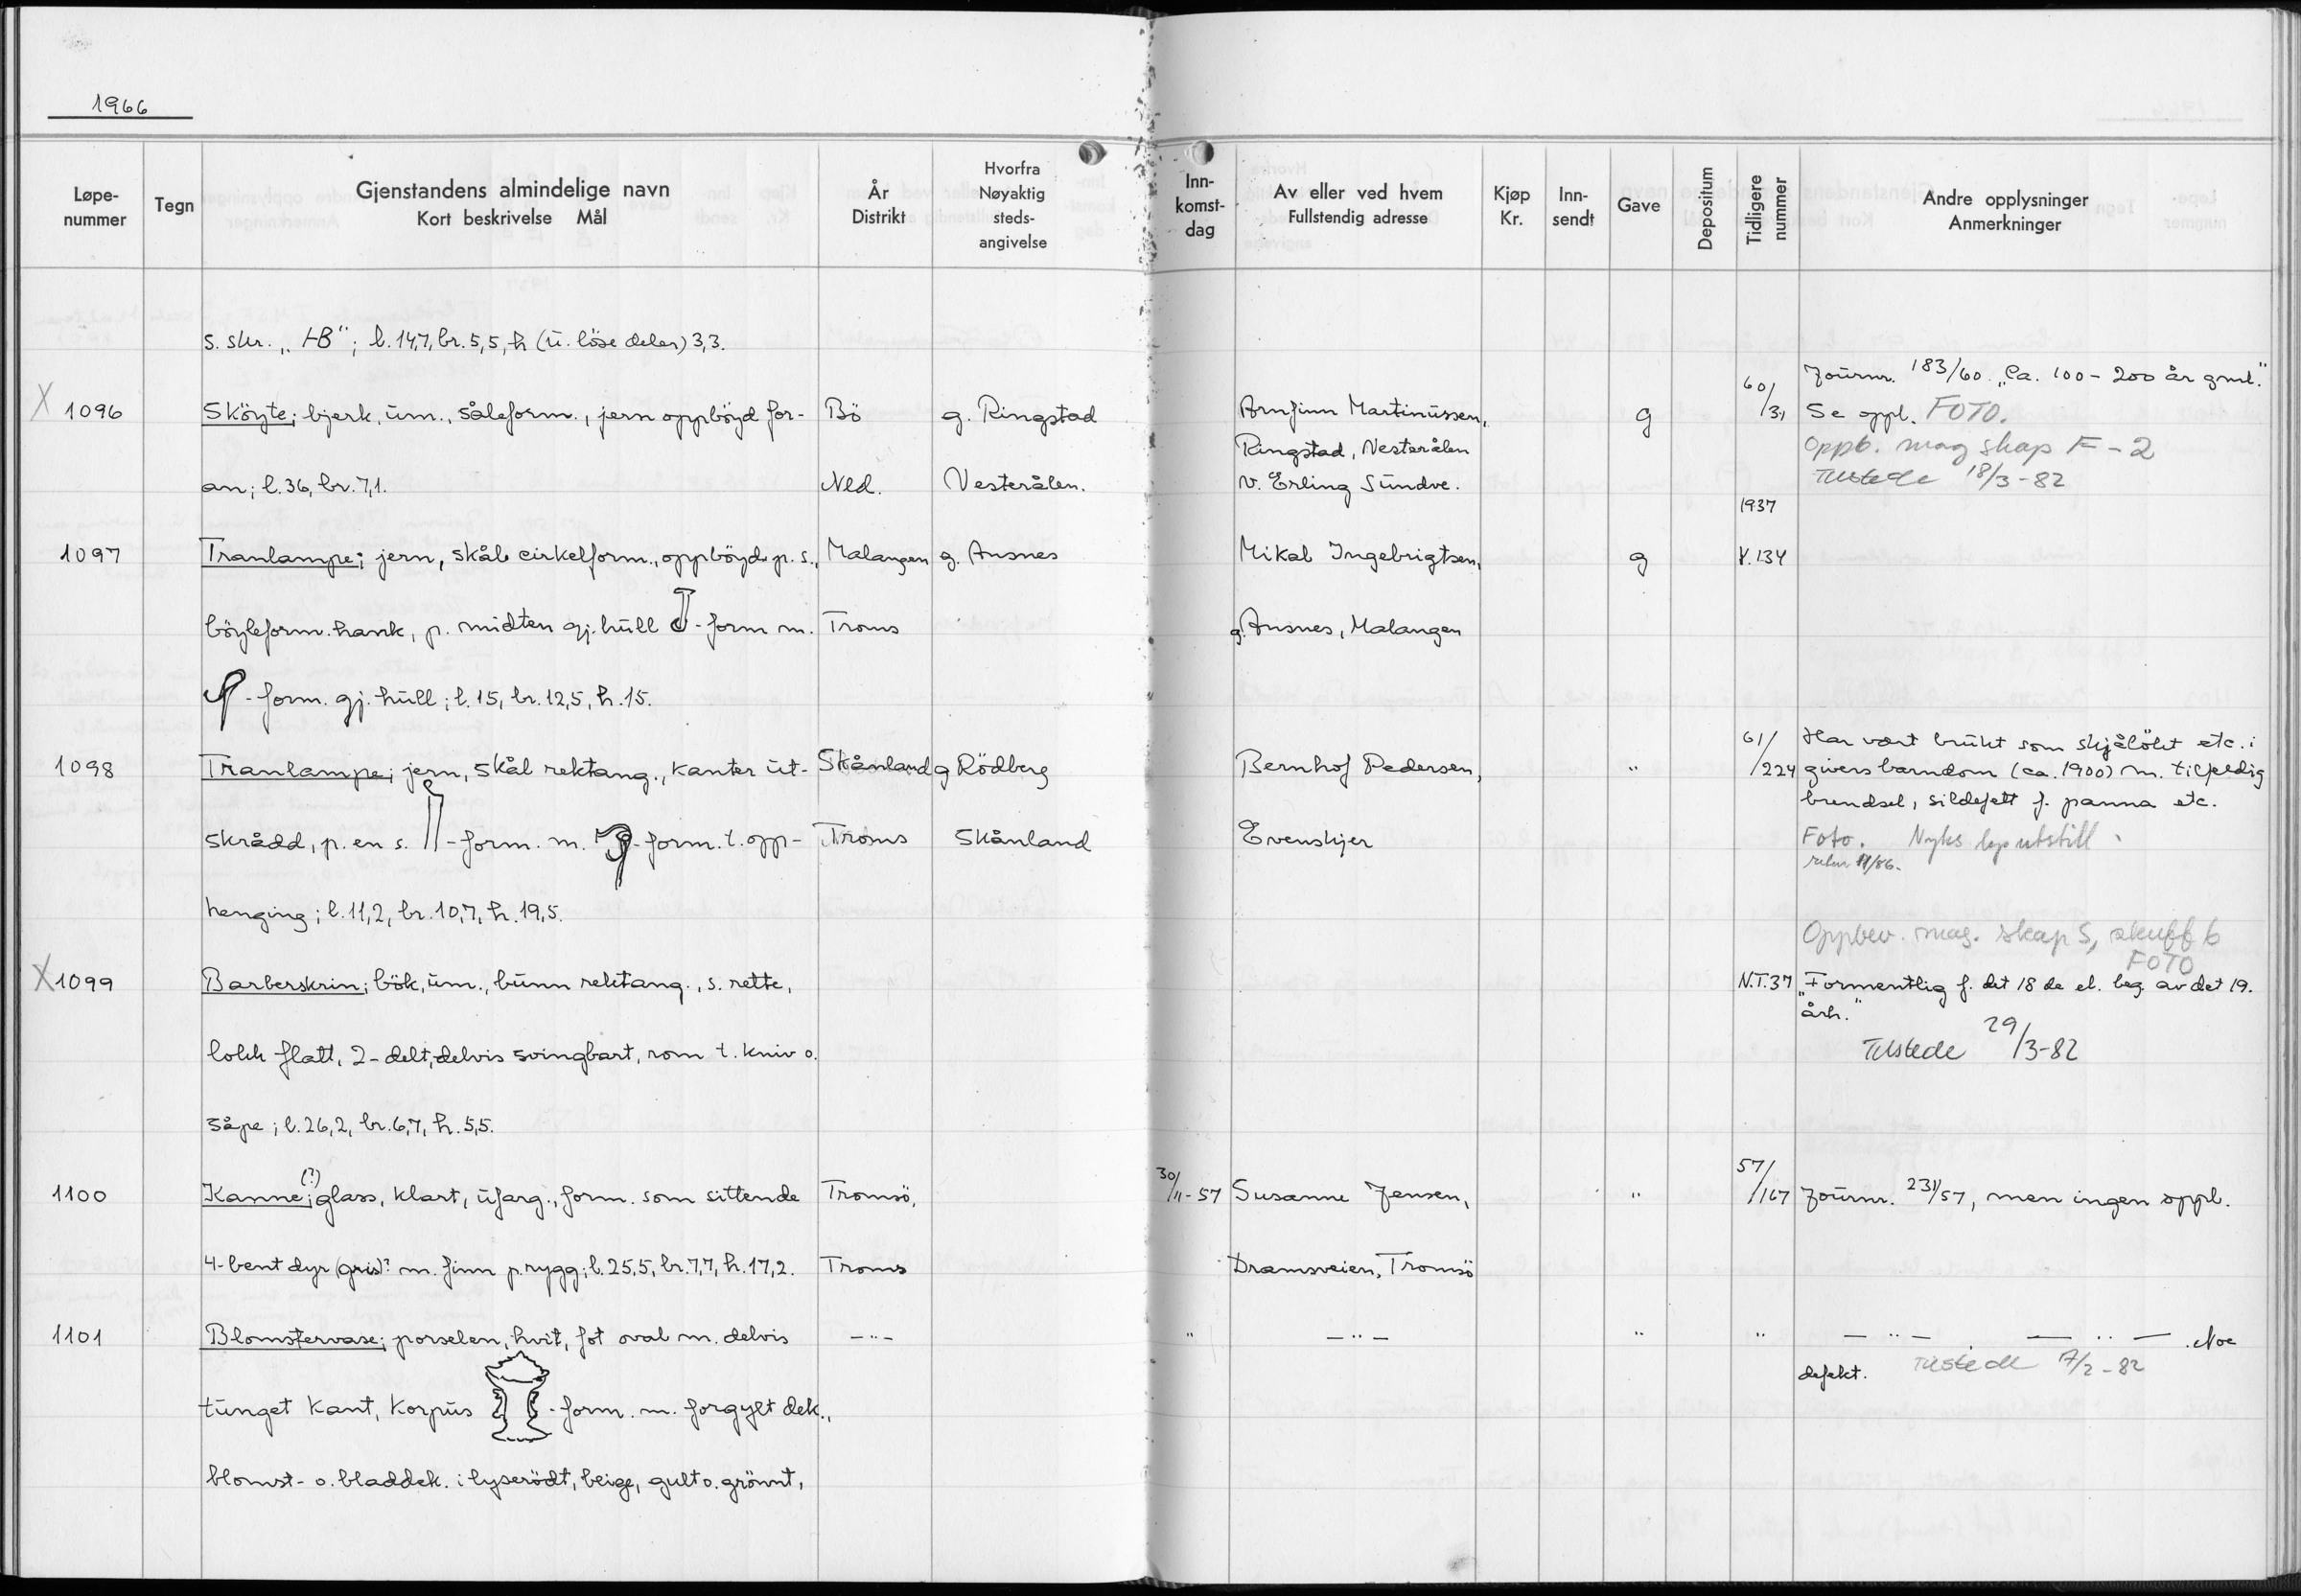 1966
Løpe-nummer
Tegn
Gjenstandens almindelige navn
Kort beskrivelse Mål
År
Distrikt
Hvorfra
Nøyaktig
steds-
angivelse
Inn-
komst-
dag
Av eller ved hvem
Fullstendig adresse
Kjøp
Kr.
Inn-
sendt
Gave
Depositum
Tidligere
nummer
Andre opplysninger
Anmerkninger
s. skr. „HB"; l. 14,7, br. 5,5, h (u. löse deler) 3,3.
X 1096 Sköyte; bjerk, um., såleform., jern oppböyd for- Bö g. Ringstad Arnfinn Martinussen, g 60/31 Journr. 183/60. „Ca. 100-200 år gml."
Se oppl. FOTO.
Ringstad, Vesterålen Oppb. mag skap F-2
an; l. 36, br. 7,1. Nld. Vesterålen. v. Erling Sundve. Tilstede 18/3-82
1937
1097 Tranlampe; jern, skål cirkelform., oppböyd p. s., Malangen g. Ansnes Mikal Ingebrigtsen, g V. 134
böyleform. hank, p. midten gj. hull -form m. Troms g. Ansnes, Malangen
-form. gj. hull; l. 15, br. 12,5, h. 15.
1098 Tranlampe; jern, skål rektang., kanter ut- Skånland g Rödberg Bernhof Pedersen, " 61/224 Har vært brukt som skjålökt etc. i
givers barndom (ca. 1900) m. tilfeldig
brendsel, sildefett f. panna etc.
skrådd, p. en s. -form. m. -form. t. opp- Troms Skånland Evenskjer Foto. Nyks utstill
11/86.
henging; l. 11,2, br. 10,7, h. 19,5.
Oppbev. mag. skap 5, skuff 6
FOTO
X 1099 Barberskrin; bök, um., bunn rektang., s. rette, N.T.37 „Formentlig f. det 18de el. beg. av det 19.
årh."
lokk flatt, 2-delt, delvis svingbart, rom t. kniv o. Tilstede 29/3-82
såpe; l. 26,2, br. 6,7, h. 5,5.
1100 Kanne(?); glass, klart, ufarg., form. som sittende Tromsö, 30/11-57 Susanne Jensen, " 57/167 Journr. 231/57, men ingen oppl.
4-bent dyr (gris)? m. finn p. rygg; l. 25,5, br. 7,7, h. 17,2. Troms Dramsveien, Tromsö
1101 Blomstervase; porselen, hvit, fot oval m. delvis -"- " -"- " " -"- -"- . Noe
defekt. Tilstede 7/2-82
tunget kant, korpus -form. m. forgylt dek.,
blomst- o. bladdek. i lyserödt, beige, gult o. grönnt,